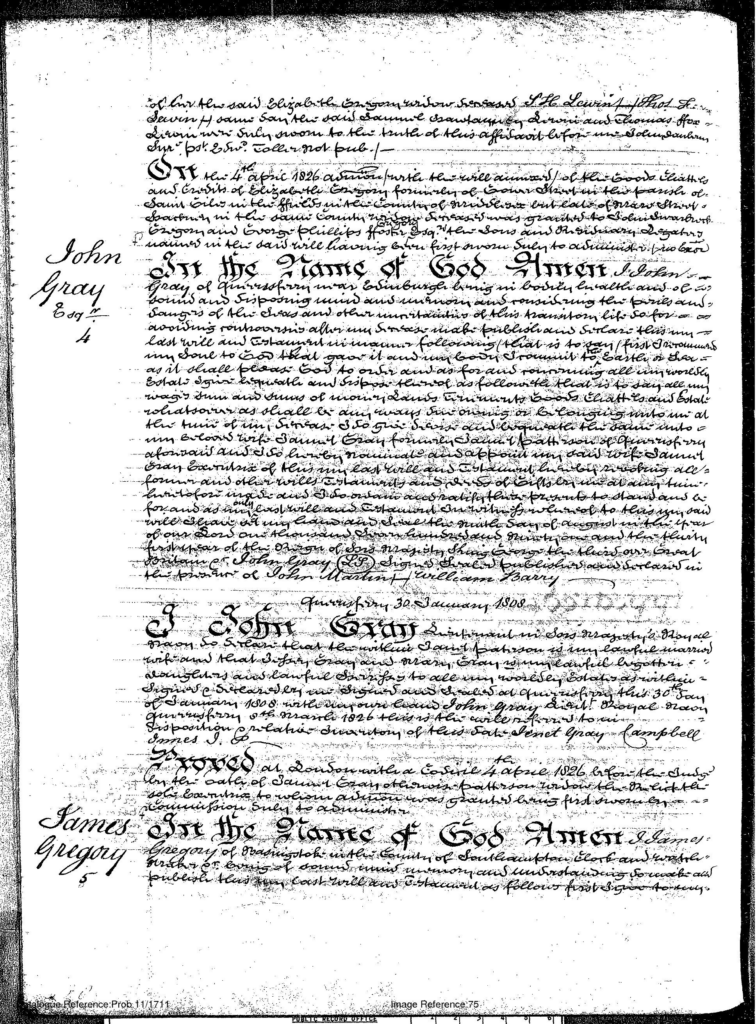 of her the said Elizabeth Gregory widow deceased S H Lewin / Thos
Lewin / same day the said Samuel Lewin and Thomas
Lewin were duly sworn to the truth of this affidavit before me
Surr. pst. Edw. Toller Not pub. /
On the 4th April 1826 admon / with the will annexed / of the Goods Chattels
and Credits of Elizabeth Gregory formerly of Gower Street in the parish of
Saint Giles in the ffields in the County of Middlesex but late of Mare Street
Hackney in the same County widow deceased was granted to John
Gregory and George Phillips Gregory Esqrs the Sons and Residuary Legatees
named in the said will having been first sworn duly to administer / no Exor
John
Gray
Esqr
4
In the Name of God Amen I John
Gray of Queensferry near Edinburgh being in bodily health and of
sound and disposing mind and memory and considering the perils and
dangers of the Seas and other uncertainties of this transitory life do for
avoiding controversies after my decease make publish and declare this my
last will and Testament in manner following / that is to say / first I recommend
my Soul to God that gave it and my body I commit to the Earth or Sea
as it shall please God to order and as for and concerning all my worldly
Estate I give bequeath and dispose thereof as followeth that is to say all my
wages Sum and Sums of money Lands Tenements Goods Chattels and Estate
whatsoever as shall be any ways due owing or belonging unto me at
the time of my decease I do give devise and bequeath the same unto
my beloved wife Jannet Gray formerly Jannet patterson of Queensferry
aforesaid and I do hereby nominate and appoint my said wife Jannet
Gray Executrix of this my last will and Testament hereby revoking all
former and other wills Testaments and deeds of Gifts by me at any time
heretofore made and I do ordain and ratify these presents to stand and be
for and as my only last will and Testament In witness whereof to this my said
will I have set my hand and Seal the Ninth day of August in the year
of our Lord one thousand Seven hundred and Ninety one and the thirty
first year of the Reign of his Majesty King George the third over Great
Britain &c John Gray (LS) Signed Sealed published and declared in
the presence of John Martin / William Barry
Queensferry 30 January 1808
I John Gray Lieutenant in his Majesty's Royal
Navy do declare that the within Janet Paterson is my lawful married
wife and that Gray and Mary Gray is my lawful begotten
daughters and lawful to all my worldly Estate as within
Signed & declared by me Signed and Sealed at Queensferry this 30th day
of January 1808 with my own hand John Gray Lieut. Royal Navy
Queensferry 9th March 1826 this is the will referred to in
disposition & relative Inventory of this date Jenet Gray Campbell
Innes J. P.
Proved at London with a Codicil 4th April 1826 before the Judge
by the oath of Jannet Gray otherwise Patterson widow the Relict the
sole Executrix to whom admon was granted being first sworn by
Commission duly to administer
James
Gregory
5
In the Name of God Amen I James
Gregory of Basingstoke in the County of Southampton Clock and watch
Maker being of sound mind memory and understanding do make and
publish this my last will and Testament as follows first I give to my
Catalogue Reference:Prob 11/1711
Image Reference:75
PUBLIC RECORD OFFICE